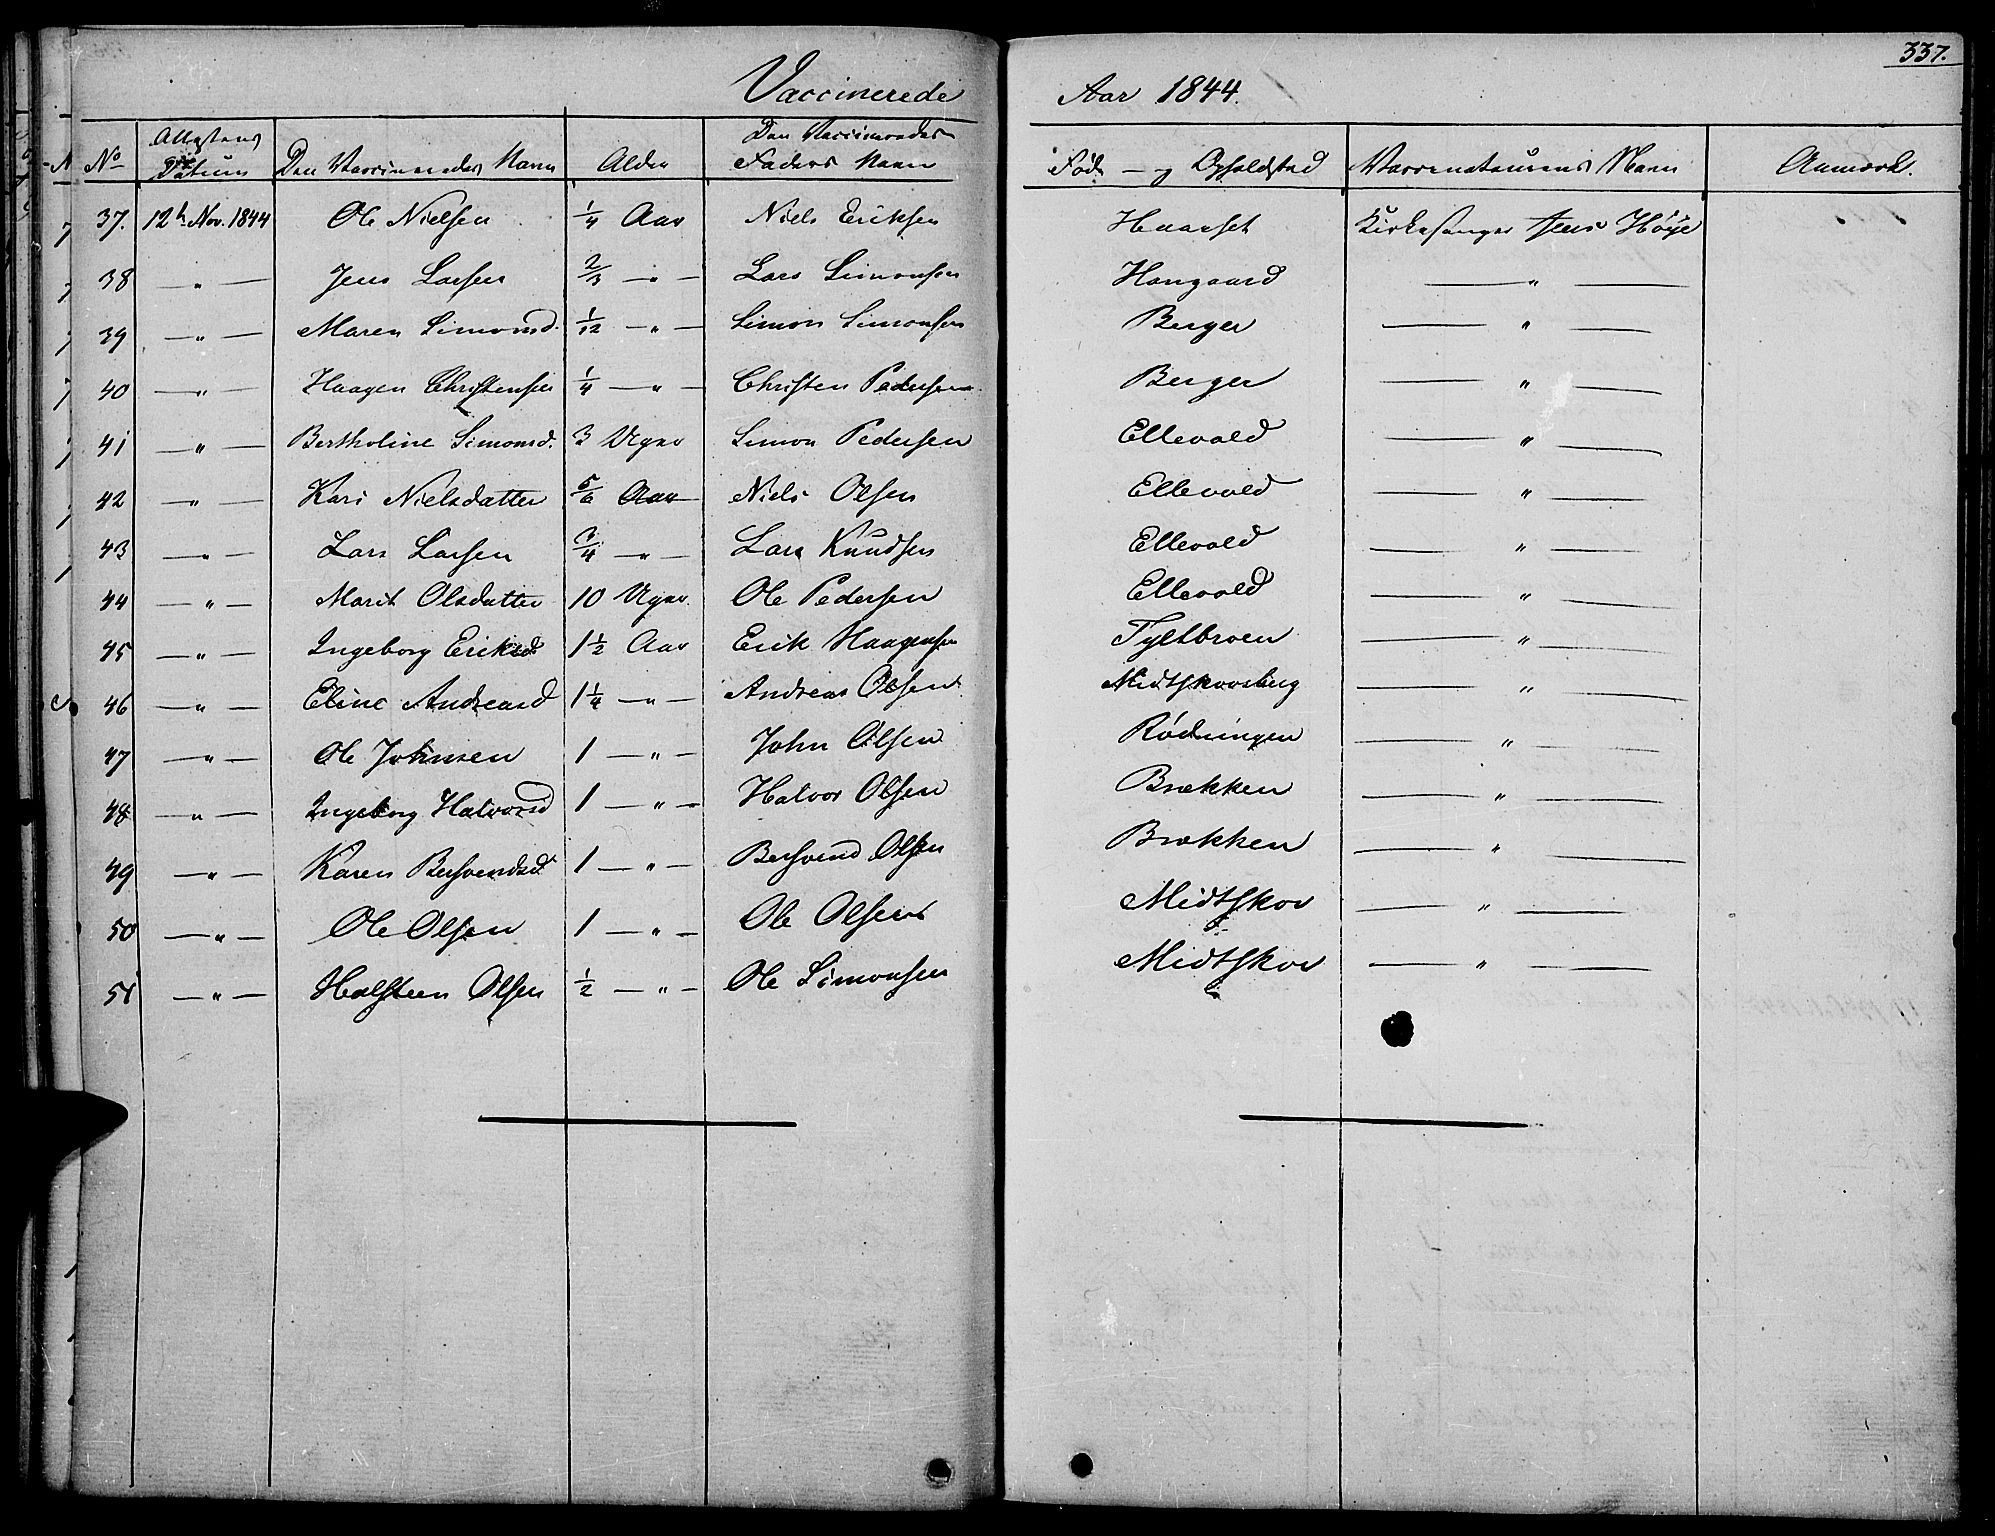 337.
Vaccinerede Aar 1844.
No Attestens Datum Den Vaccineredes Navn Alder Den Vaccineredes Faders Navn Føde- og Opholdsted Vaccinateurens Navn Anmærk.
37. 12te Nov. 1844 Ole Nielsen 1/4 Aar Niels Eriksen Haarset Kirkesanger Jens Høye
38 — " — Jens Larsen 2/3 — " — Lars Simonsen Haugaard — " —
39 — " — Maren Simonsd. 1/12 — " — Simon Simonsen Berger — " —
40 — " — Haagen Christensen 1/4 — " — Christen Pedersen Berger — " —
41 — " — Bertholine Simonsd. 3 Uger Simon Pedersen Ellevold — " —
42 — " — Kari Nielsdatter 5/6 Aar Niels Olsen Ellevold — " —
43 — " — Lars Larsen 3/4 — " — Lars Knudsen Ellevold — " —
44 — " — Marit Olsdatter 10 Uger. Ole Pedersen Ellevold — " —
45 — " — Ingeborg Eriksd. 1 1/2 Aar Erik Haagensen Tyltbroen — " —
46 — " — Eline Andreasd 1 1/4 — " — Andreas Olsen Midtskovsbug — " —
47 — " — Ole Johnsen 1 — " — John Olsen Rødningen — " —
48 — " — Ingeborg Halvorsd 1 — " — Halvor Olsen Brækken — " —
49 — " — Karen Bersvendsd. 1 — " — Bersvend Olsen Brækken — " —
50 — " — Ole Olsen 1 — " — Ole Olsen Midtskov — " —
51 — " — Halsteen Olsen 1/2 — " — Ole Simonsen Midtskov — " —